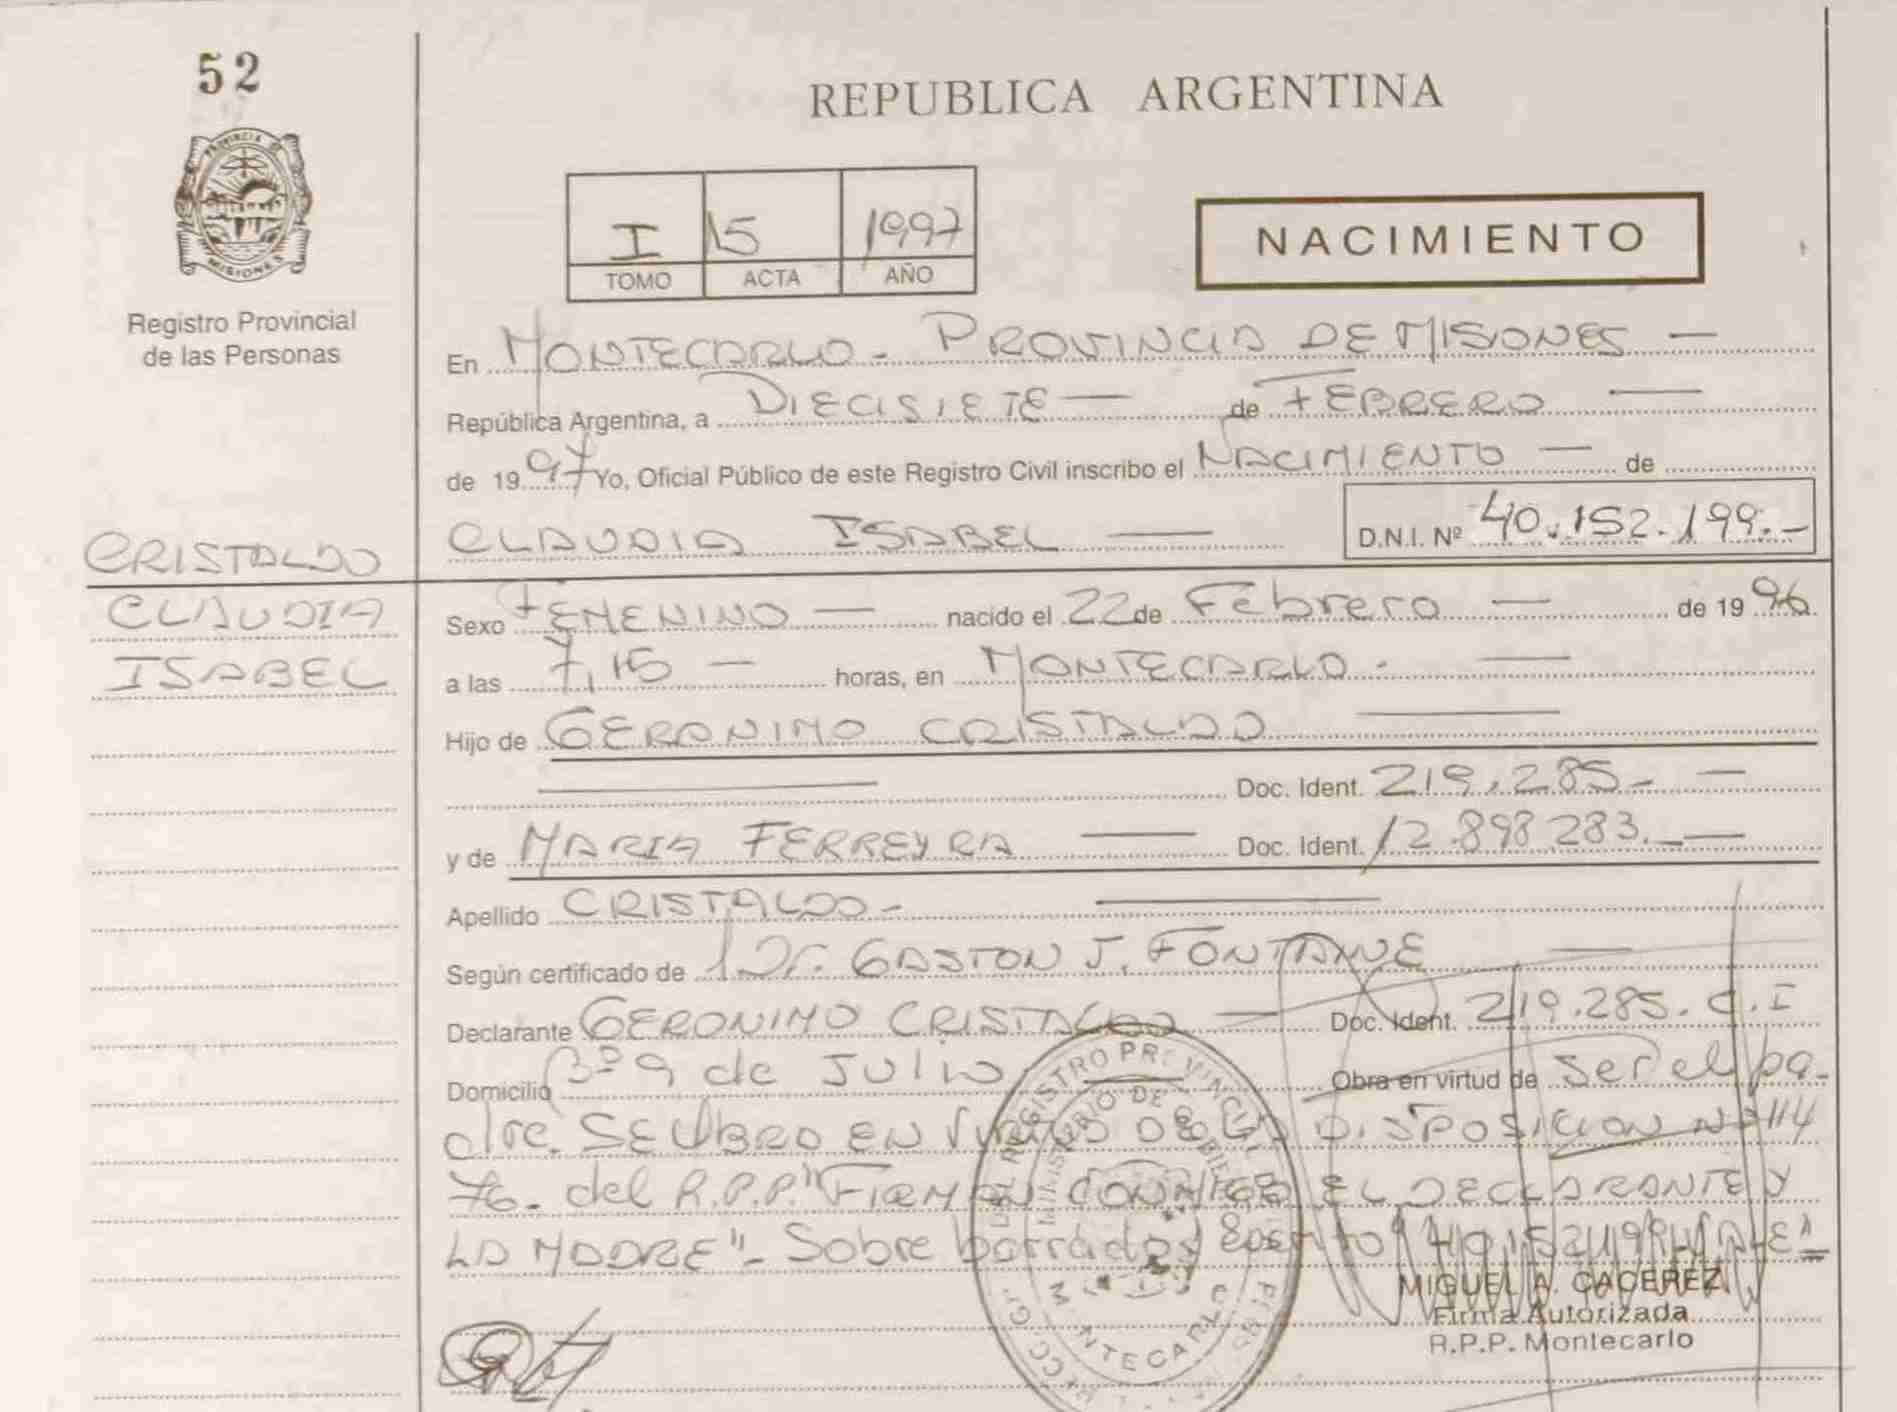 52
REPUBLICA ARGENTINA
PROVINCIA DE
MISIONES
Registro Provincial
de las Personas
I 15 1997
TOMO ACTA AÑO
NACIMIENTO
En MONTECARLO - PROVINCIA DE MISIONES —
República Argentina, a DIECISIETE — de FEBRERO —
de 1997 Yo, Oficial Público de este Registro Civil inscribo el NACIMIENTO — de
CLAUDIA ISABEL — D.N.I. Nº 40.152.199.-
CRISTALDO
CLAUDIA
ISABEL
Sexo FEMENINO — nacido el 22 de Febrero — de 1996
a las 7,15 — horas, en MONTECARLO. —
Hijo de GERONIMO CRISTALDO —
— Doc. Ident. 219.285- —
y de MARIA FERREYRA — Doc. Ident. 12.898.283.- —
Apellido CRISTALDO- —
Según certificado de Dr. GASTON J. FONTAINE —
Declarante GERONIMO CRISTALDO — Doc. Ident. 219.285. C.I
Domicilio Bº 9 de JULIO — Obra en virtud de ser el pa-
dre. SE LABRO EN VIRTUD DE LA DISPOSICION Nº 114
76- del R.P.P. "FIRMAN CONMIGO EL DECLARANTE Y
LA MADRE"- Sobre borrado y "40.152.199" VALE"-
MIGUEL A. CACEREZ
Firma Autorizada
R.P.P. Montecarlo
REGISTRO PROVINCIAL DE
MINISTERIO DE GOBIERNO
MONTECARLO